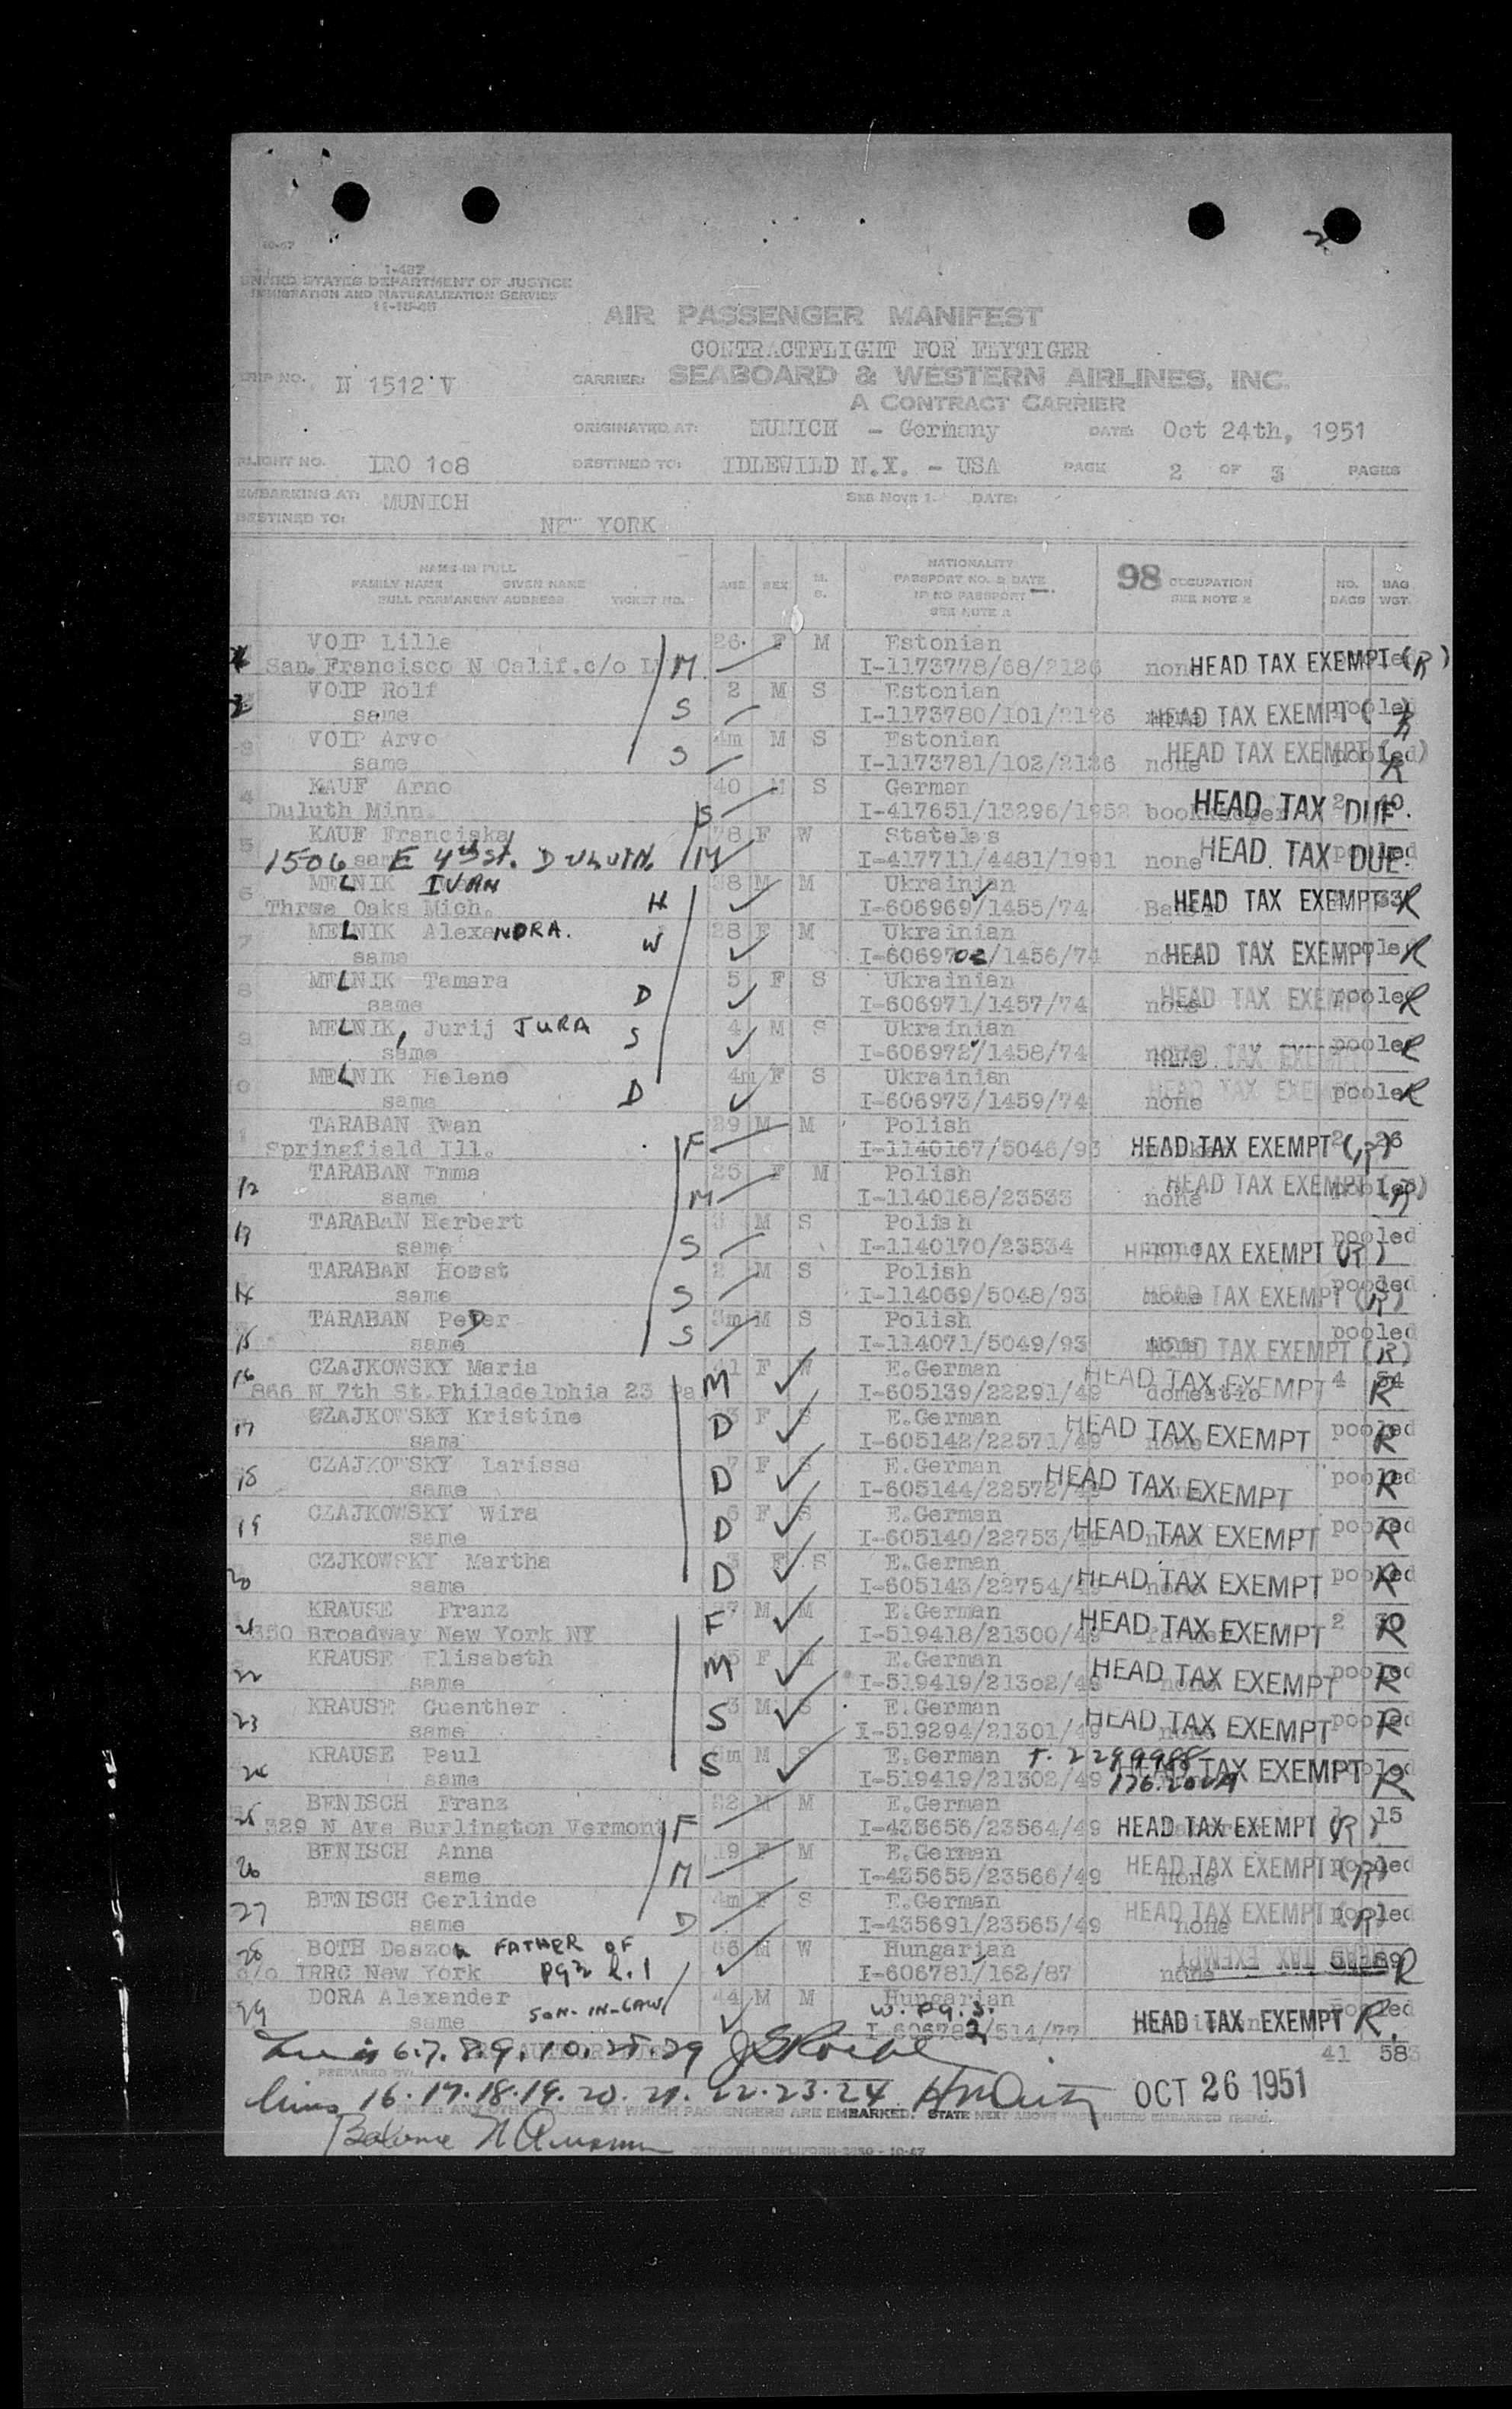 2
10-47
I-487
UNITED STATES DEPARTMENT OF JUSTICE
IMMIGRATION AND NATURALIZATION SERVICE
11-15-45
AIR PASSENGER MANIFEST
CONTRACTFLIGHT FOR FLYTIGER
TRIP NO. N 1512 V CARRIER: SEABOARD & WESTERN AIRLINES, INC.
A CONTRACT CARRIER
ORIGINATED AT: MUNICH - Germany DATE: Oct 24th, 1951
FLIGHT NO. IRO 108 DESTINED TO: IDLEWILD N.Y. - USA PAGE 2 OF 3 PAGES
EMBARKING AT: MUNICH SEE NOTE 1. DATE:
DESTINED TO: NEW YORK
NAME IN FULL FAMILY NAME GIVEN NAME FULL PERMANENT ADDRESS TICKET NO. AGE SEX M. S. NATIONALITY PASSPORT NO. & DATE IF NO PASSPORT SEE NOTE 2 98 OCCUPATION SEE NOTE 2 NO. BAGS BAG WGT.
VOIP Lille 26 F M Estonian
San. Francisco N Calif.c/o M I-1173778/68/2126 none HEAD TAX EXEMPT (R)
2 VOIP Rolf 2 M S Estonian
same S I-1173780/101/2126 HEAD TAX EXEMPT pooled R
3 VOIP Arvo 4m M S Estonian
same S I-1173781/102/2126 none HEAD TAX EXEMPT pooled R
4 KAUF Arno 40 M S German
Duluth Minn. S I-417651/13296/1952 bookkeeper HEAD TAX DUE. 2 40
5 KAUF Franciska 78 F W Stateles
1506 same E 4th St. DULUTH. M I-417711/4481/1991 none HEAD TAX DUE
6 MELNIK IVAN 38 M M Ukrainian
Three Oaks Mich. H I-606969/1455/74 HEAD TAX EXEMPT R
7 MELNIK AlexaNDRA. 28 F M Ukrainian
same W I-606970/1456/74 HEAD TAX EXEMPT R
8 MELNIK Tamara 5 F S Ukrainian
same D I-606971/1457/74 none HEAD TAX EXEMPT pooled R
9 MELNIK, Jurij JURA 4 M S Ukrainian
same S I-606972/1458/74 none HEAD TAX EXEMPT pooled R
MELNIK Helene 4m F S Ukrainian
same D I-606973/1459/74 none HEAD TAX EXEMPT pooled R
TARABAN Iwan 29 M M Polish
Springfield Ill. F I-1140167/5046/93 HEAD TAX EXEMPT (R) 2 26
12 TARABAN Emma 25 F M Polish
same M I-1140168/23533 none HEAD TAX EXEMPT (R)
13 TARABAN Herbert 3 M S Polish pooled
same S I-1140170/23534 none HEAD TAX EXEMPT (R)
14 TARABAN Horst 2 M S Polish pooled
same S I-114069/5048/93 HEAD TAX EXEMPT (R)
15 TARABAN PeDer 3m M S Polish pooled
same S I-114071/5049/93 none HEAD TAX EXEMPT (R)
16 CZAJKOWSKY Maria 41 F W E.German
866 N 7th St.Philadelphia 23 Pa M I-605139/22291/49 domestic HEAD TAX EXEMPT 4 54 R
17 CZAJKOWSKY Kristine F S E.German
same D I-605142/22571/49 none HEAD TAX EXEMPT pooled R
18 CZAJKOWSKY Larissa 7 F S E.German
same D I-605144/22572/49 HEAD TAX EXEMPT pooled R
19 CZAJKOWSKY Wira 6 F S E.German
same D I-605140/22753/49 HEAD TAX EXEMPT pooled R
20 CZJKOWSKY Martha 3 F S E.German
same D I-605143/22754/49 none HEAD TAX EXEMPT pooled R
21 KRAUSE Franz 27 M M E.German
350 Broadway New York NY F I-519418/21300/49 HEAD TAX EXEMPT 2 R
22 KRAUSE Elisabeth F M E.German
same M I-519419/21302/49 none HEAD TAX EXEMPT pooled R
23 KRAUSE Guenther 3 M S E.German
same S I-519294/21301/49 none HEAD TAX EXEMPT pooled R
24 KRAUSE Paul M S E.German T. 2299988
same S I-519419/21302/49 HEAD TAX EXEMPT R
25 BENISCH Franz 32 M M E.German
329 N Ave Burlington Vermont F I-435656/23564/49 HEAD TAX EXEMPT (R) 15
26 BENISCH Anna 19 F M E.German
same M I-435655/23566/49 none HEAD TAX EXEMPT (R) pooled
27 BENISCH Gerlinde 4m F S E.German
same D I-435691/23565/49 none HEAD TAX EXEMPT (R) pooled
28 BOTH Deszo FATHER OF 66 M W Hungarian
c/o IRRC New York pg 2 L. 1 I-606781/162/87 none HEAD TAX EXEMPT R
29 DORA Alexander SON-IN-LAW 44 M M Hungarian W. pg. 3.
same I-606782/514/77 HEAD TAX EXEMPT R.
6.7.8.9.10.28.29 41 583
PREPARED BY:
16.17.18.19.20.21.22.23.24 OCT 26 1951
NOTE: ANY OTHER PLACE AT WHICH PASSENGERS ARE EMBARKED. STATE NEXT ABOVE PASSENGERS EMBARKED THERE.
Balance
OLDTOWN DUPLIFORM 3350 - 10-47